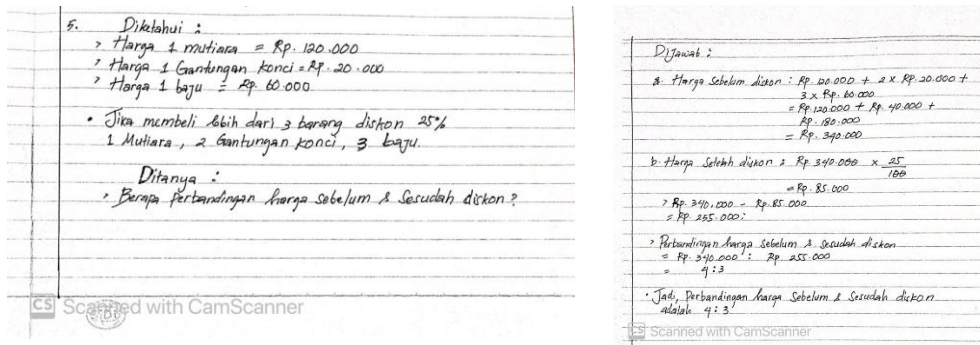 5. Diketahui :
> Harga 1 mutiara = Rp. 120.000
> Harga 1 Gantungan konci = Rp. 20.000
> Harga 1 baju = Rp. 60.000
• Jika membeli lebih dari 3 barang diskon 25%
1 Mutiara, 2 Gantungan konci, 3 baju.
Ditanya :
> Berapa Perbandingan harga sebelum & Sesudah diskon ?
CS Scanned with CamScanner
Dijawab :
a. Harga Sebelum diskon : Rp. 120.000 + 2 x Rp. 20.000 +
3 x Rp. 60.000
= Rp. 120.000 + Rp. 40.000 +
Rp. 180.000
= Rp. 340.000
b. Harga Setelah diskon : Rp. 340.000 x 25/100
= Rp. 85.000
> Rp. 340.000 - Rp. 85.000
= Rp. 255.000;
> Perbandingan harga Sebelum & Sesudah diskon
= Rp. 340.000 : Rp. 255.000
= 4:3
• Jadi, Perbandingan harga Sebelum & Sesudah diskon
adalah 4:3
CS Scanned with CamScanner